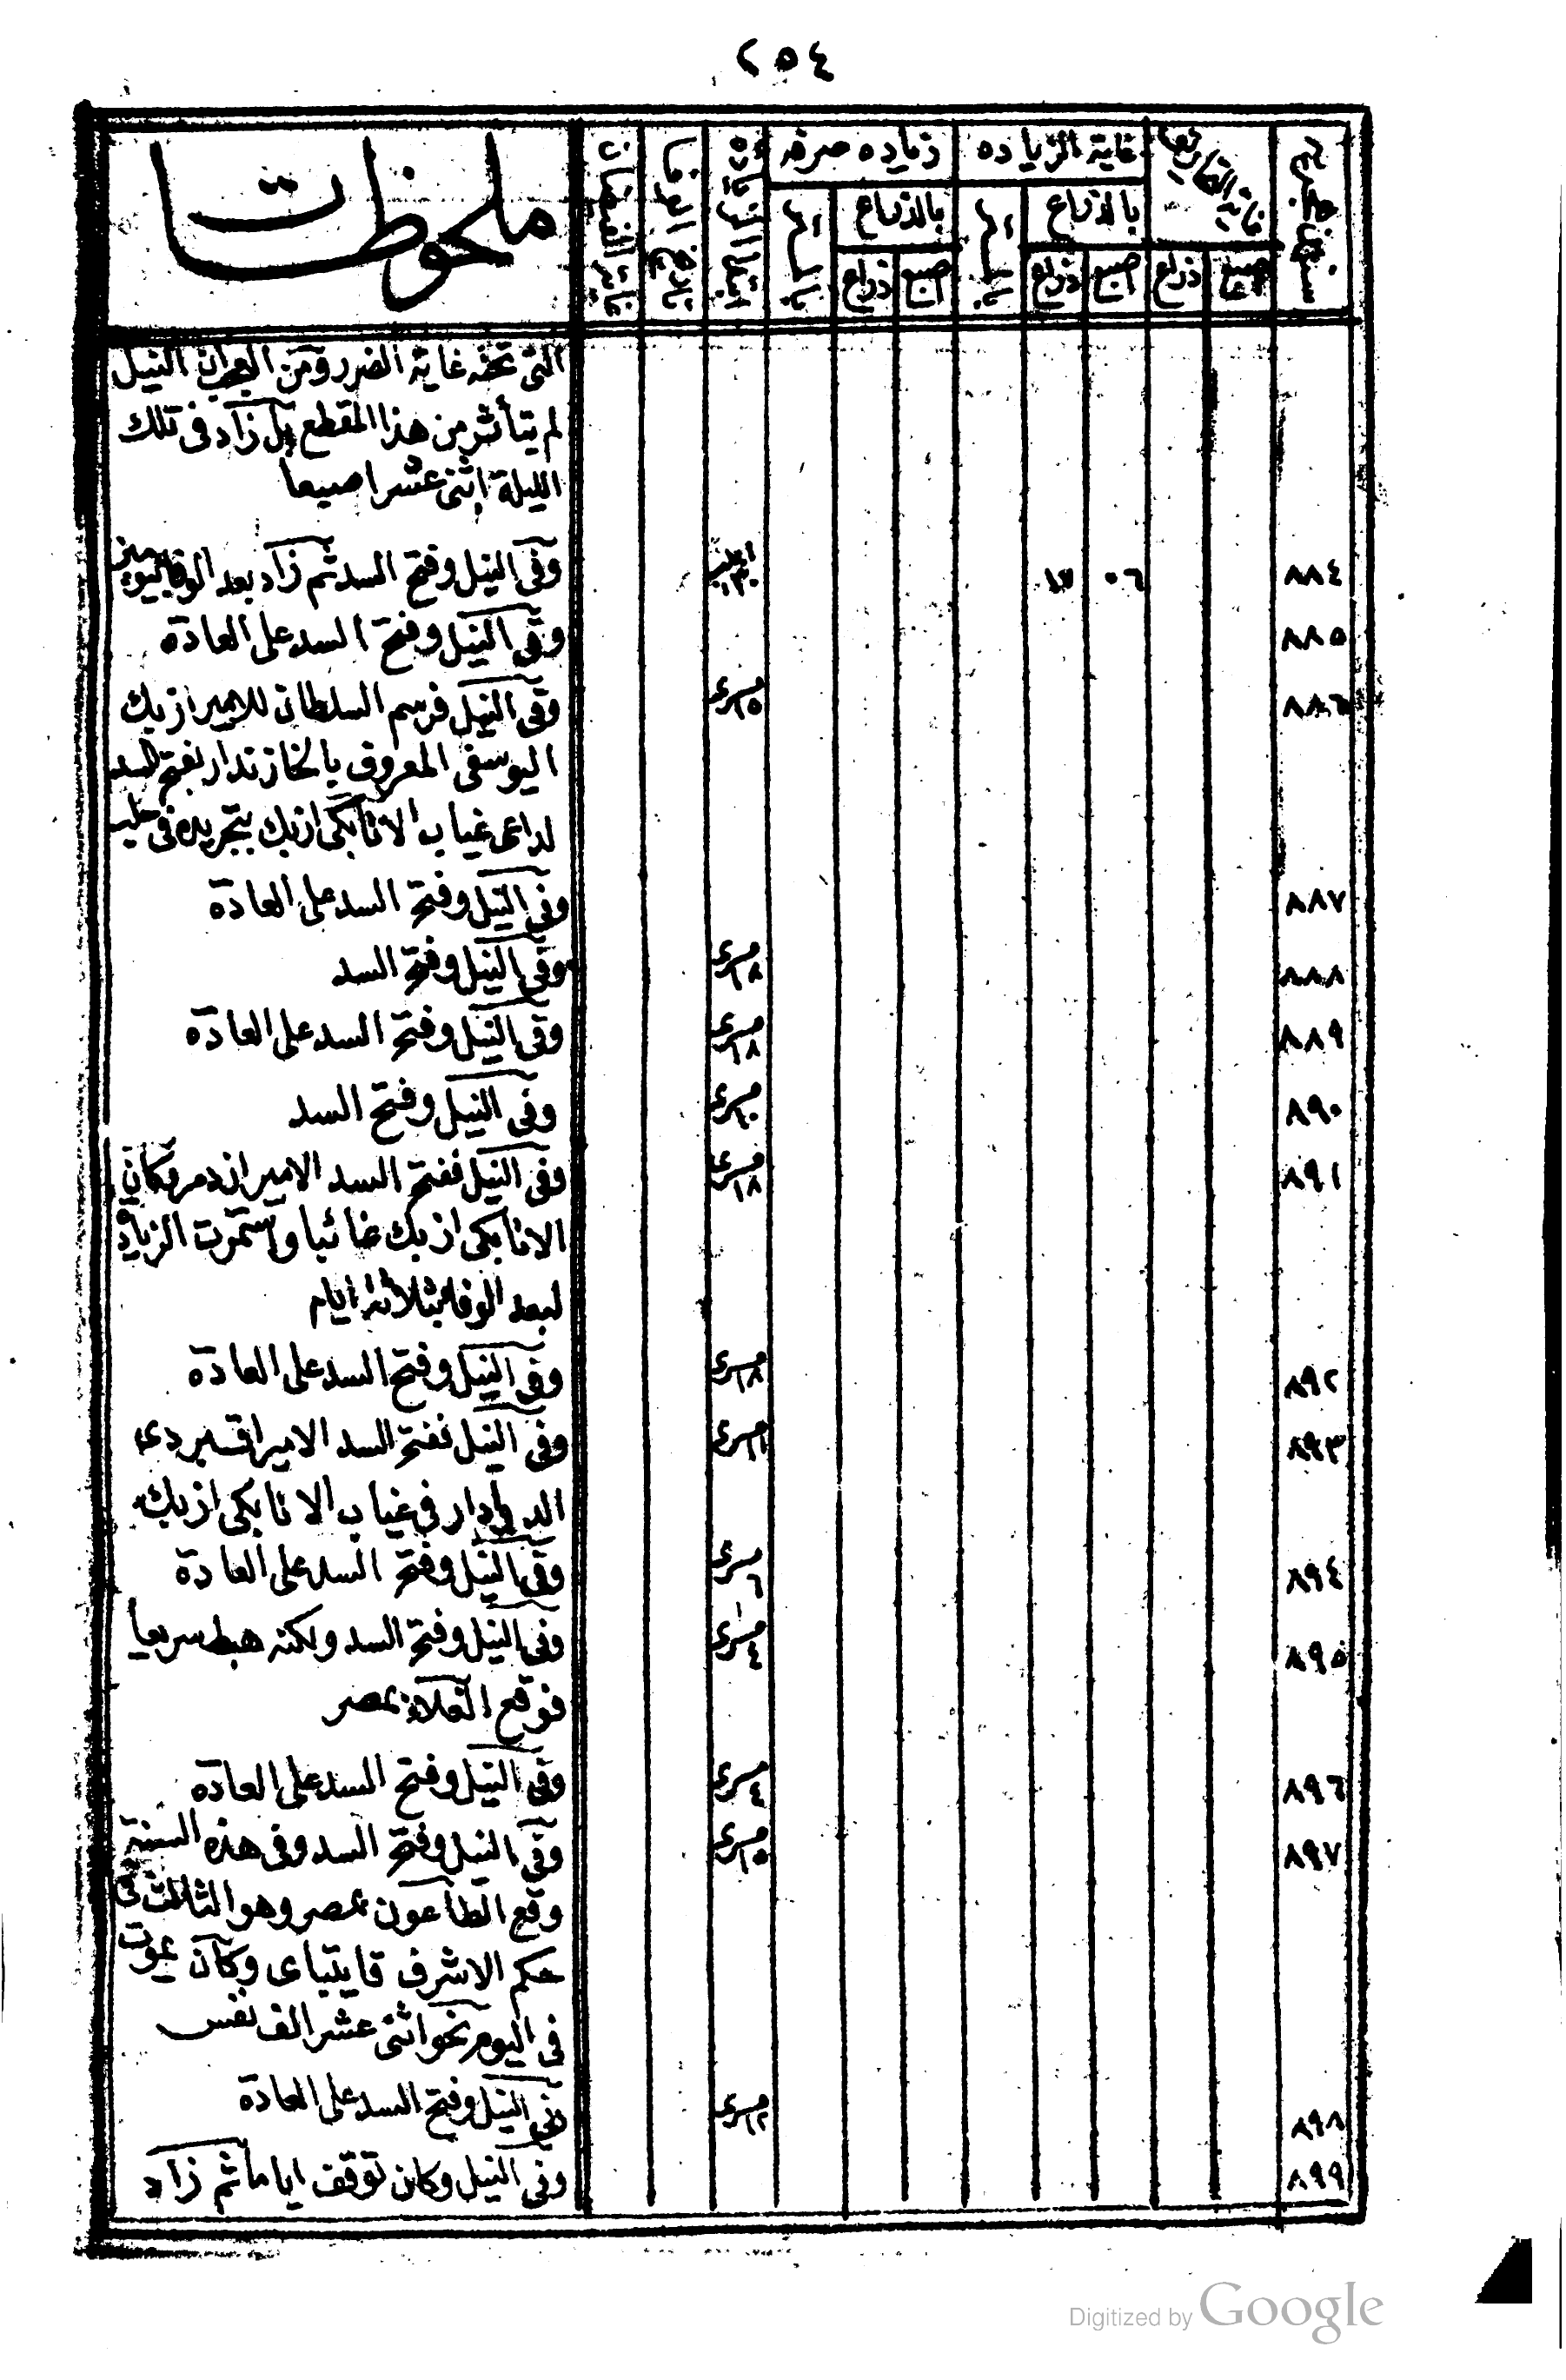 ٢٥٤
غاية الزياده
زياده صرفه
ملحوظات
بالذراع
بالذراع
اصبع
ذراع
اصبع
ذراع
اصبع
ذراع
التى تحته غاية الضرر ومن النيل
لم يتأثر من هذا المقطع بل زاد فى تلك
الليلة اثنى عشر اصبعا
٨٨٤ ٠٦ ١٧ وفى النيل وفتح السد ثم زاد بعد الوفا بيومين
٨٨٥ وفى النيل وفتح السد على العادة
٨٨٦ ١٥ مسرى وفى النيل فرسم السلطان للامير ازبك
اليوسفى المعروف بالخازندار بفتح السد
لداعى غياب الاتابكى ازبك بتجريده فى حلب
٨٨٧ وفى النيل وفتح السد على العادة
٨٨٨ مسرى ١٨ وفى النيل وفتح السد
٨٨٩ مسرى ١٨ وفى النيل وفتح السد على العادة
٨٩٠ مسرى وفى النيل وفتح السد
٨٩١ مسرى ١٨ وفى النيل ففتح السد الامير ازدمر وكان
الاتابكى ازبك غائبا واستمرت الزيادة
لبعد الوفا بثلاثة ايام
٨٩٢ مسرى ١٨ وفى النيل وفتح السد على العادة
٨٩٣ مسرى وفى النيل ففتح السد الامير اقبردى
الدوادار فى غياب الاتابكى ازبك
٨٩٤ مسرى ٦ وفى النيل وفتح السد على العادة
٨٩٥ مسرى ٤ وفى النيل وفتح السد ولكنه هبط سريعا
فوقع الغلاء بمصر
٨٩٦ مسرى ٤ وفى النيل وفتح السد على العادة
٨٩٧ مسرى ١٥ وفى النيل وفتح السد وفى هذه السنة
وقع الطاعون بمصر وهو الثالث فى
حكم الاشرف قايتباى وكان يموت
فى اليوم نحو اثنى عشر الف نفس
٨٩٨ مسرى ١٢ وفى النيل وفتح السد على العادة
٨٩٩ وفى النيل وكان توقف اياما ثم زاد
Digitized by Google